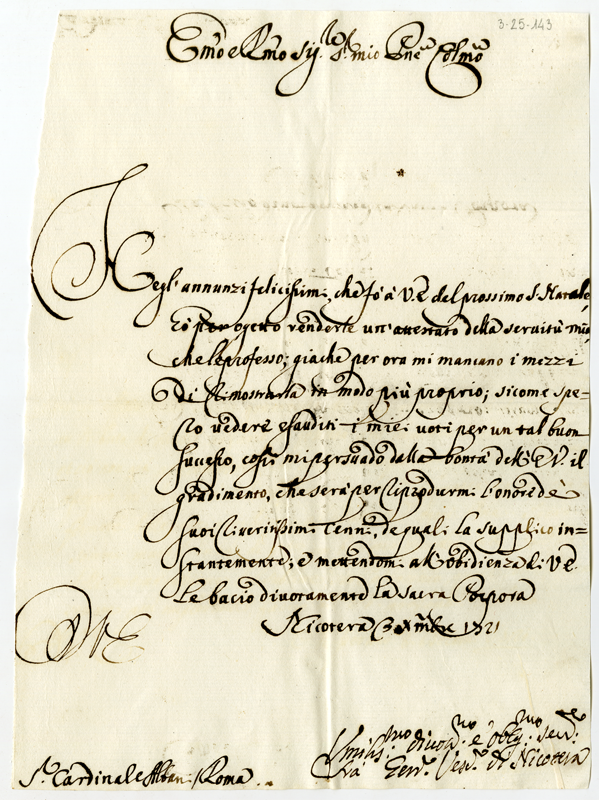 3-25-143
Em̃o e Rm̃o Sig.re Sr. mio Pne Colmo
Negl' annunzi felicissimi, che fò à V.E. del prossimo S. Natale,
hò per ogetto renderle un' attestato della servitù mia
che le professo; giache per ora mi mancano i mezzi
di dimostrarla in modo più proprio; sicome spe=
ro vedere esauditi i miei voti per un tal buon
successo, cosi mi persuado dalla bontà dell' E.V. il
gradimento, che serà per riprodurmi l'onore de
suoi riveritissimi cenni, de quali la supplico in=
stantemente; e mettendomi all' obidienza di V.E.
le bacio divotamente la sacra Porpora
Nicotera Xmbre 1721
Umiliss.mo divot.mo e oblig.mo ser.re
Vesc.o di Nicotera
Sr. Cardinale Albani Roma